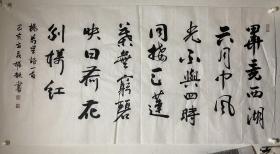 畢竟西湖
六月中風
光不與四時
同接天蓮
葉無窮碧
映日荷花
別樣紅
楊萬里詩一首
己亥 書